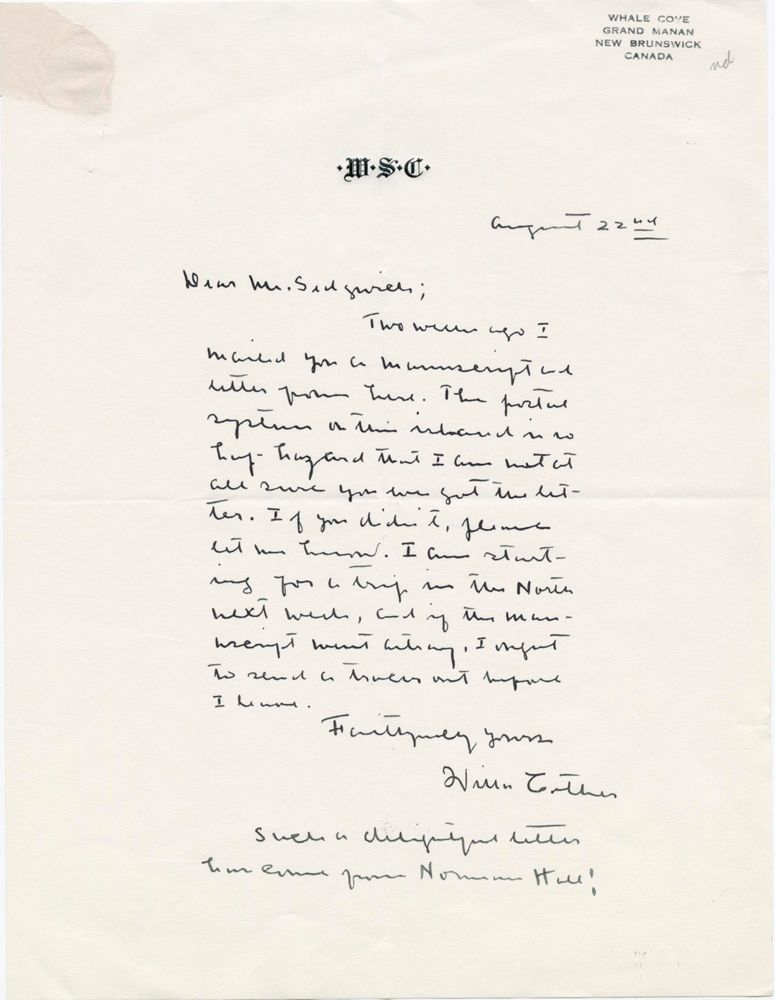 WHALE COVE
GRAND MANAN
NEW BRUNSWICK
CANADA
nd
·W·S·C·
August 22nd
Dear Mr. Sedgwick;
Two weeks ago I
mailed you a manuscript and
letter from here. The postal
system on this island is so
hap-hazard that I am not at
all sure you ever got the let-
ter. If you didn't, please
let me know. I am start-
ing for a trip in the North
next week, and if the man-
uscript went astray, I ought
to send a tracer out before
I leave.
Faithfully yours
Willa Cather
Such a delightful letter
has come from Norman Hall!